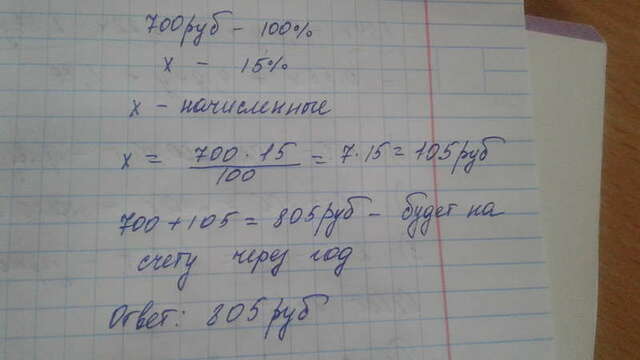 700руб - 100%
x - 15%
x - начисленные
x = 700 · 15 / 100 = 7 · 15 = 105руб
700 + 105 = 805руб - будет на
счету через год
Ответ: 805руб